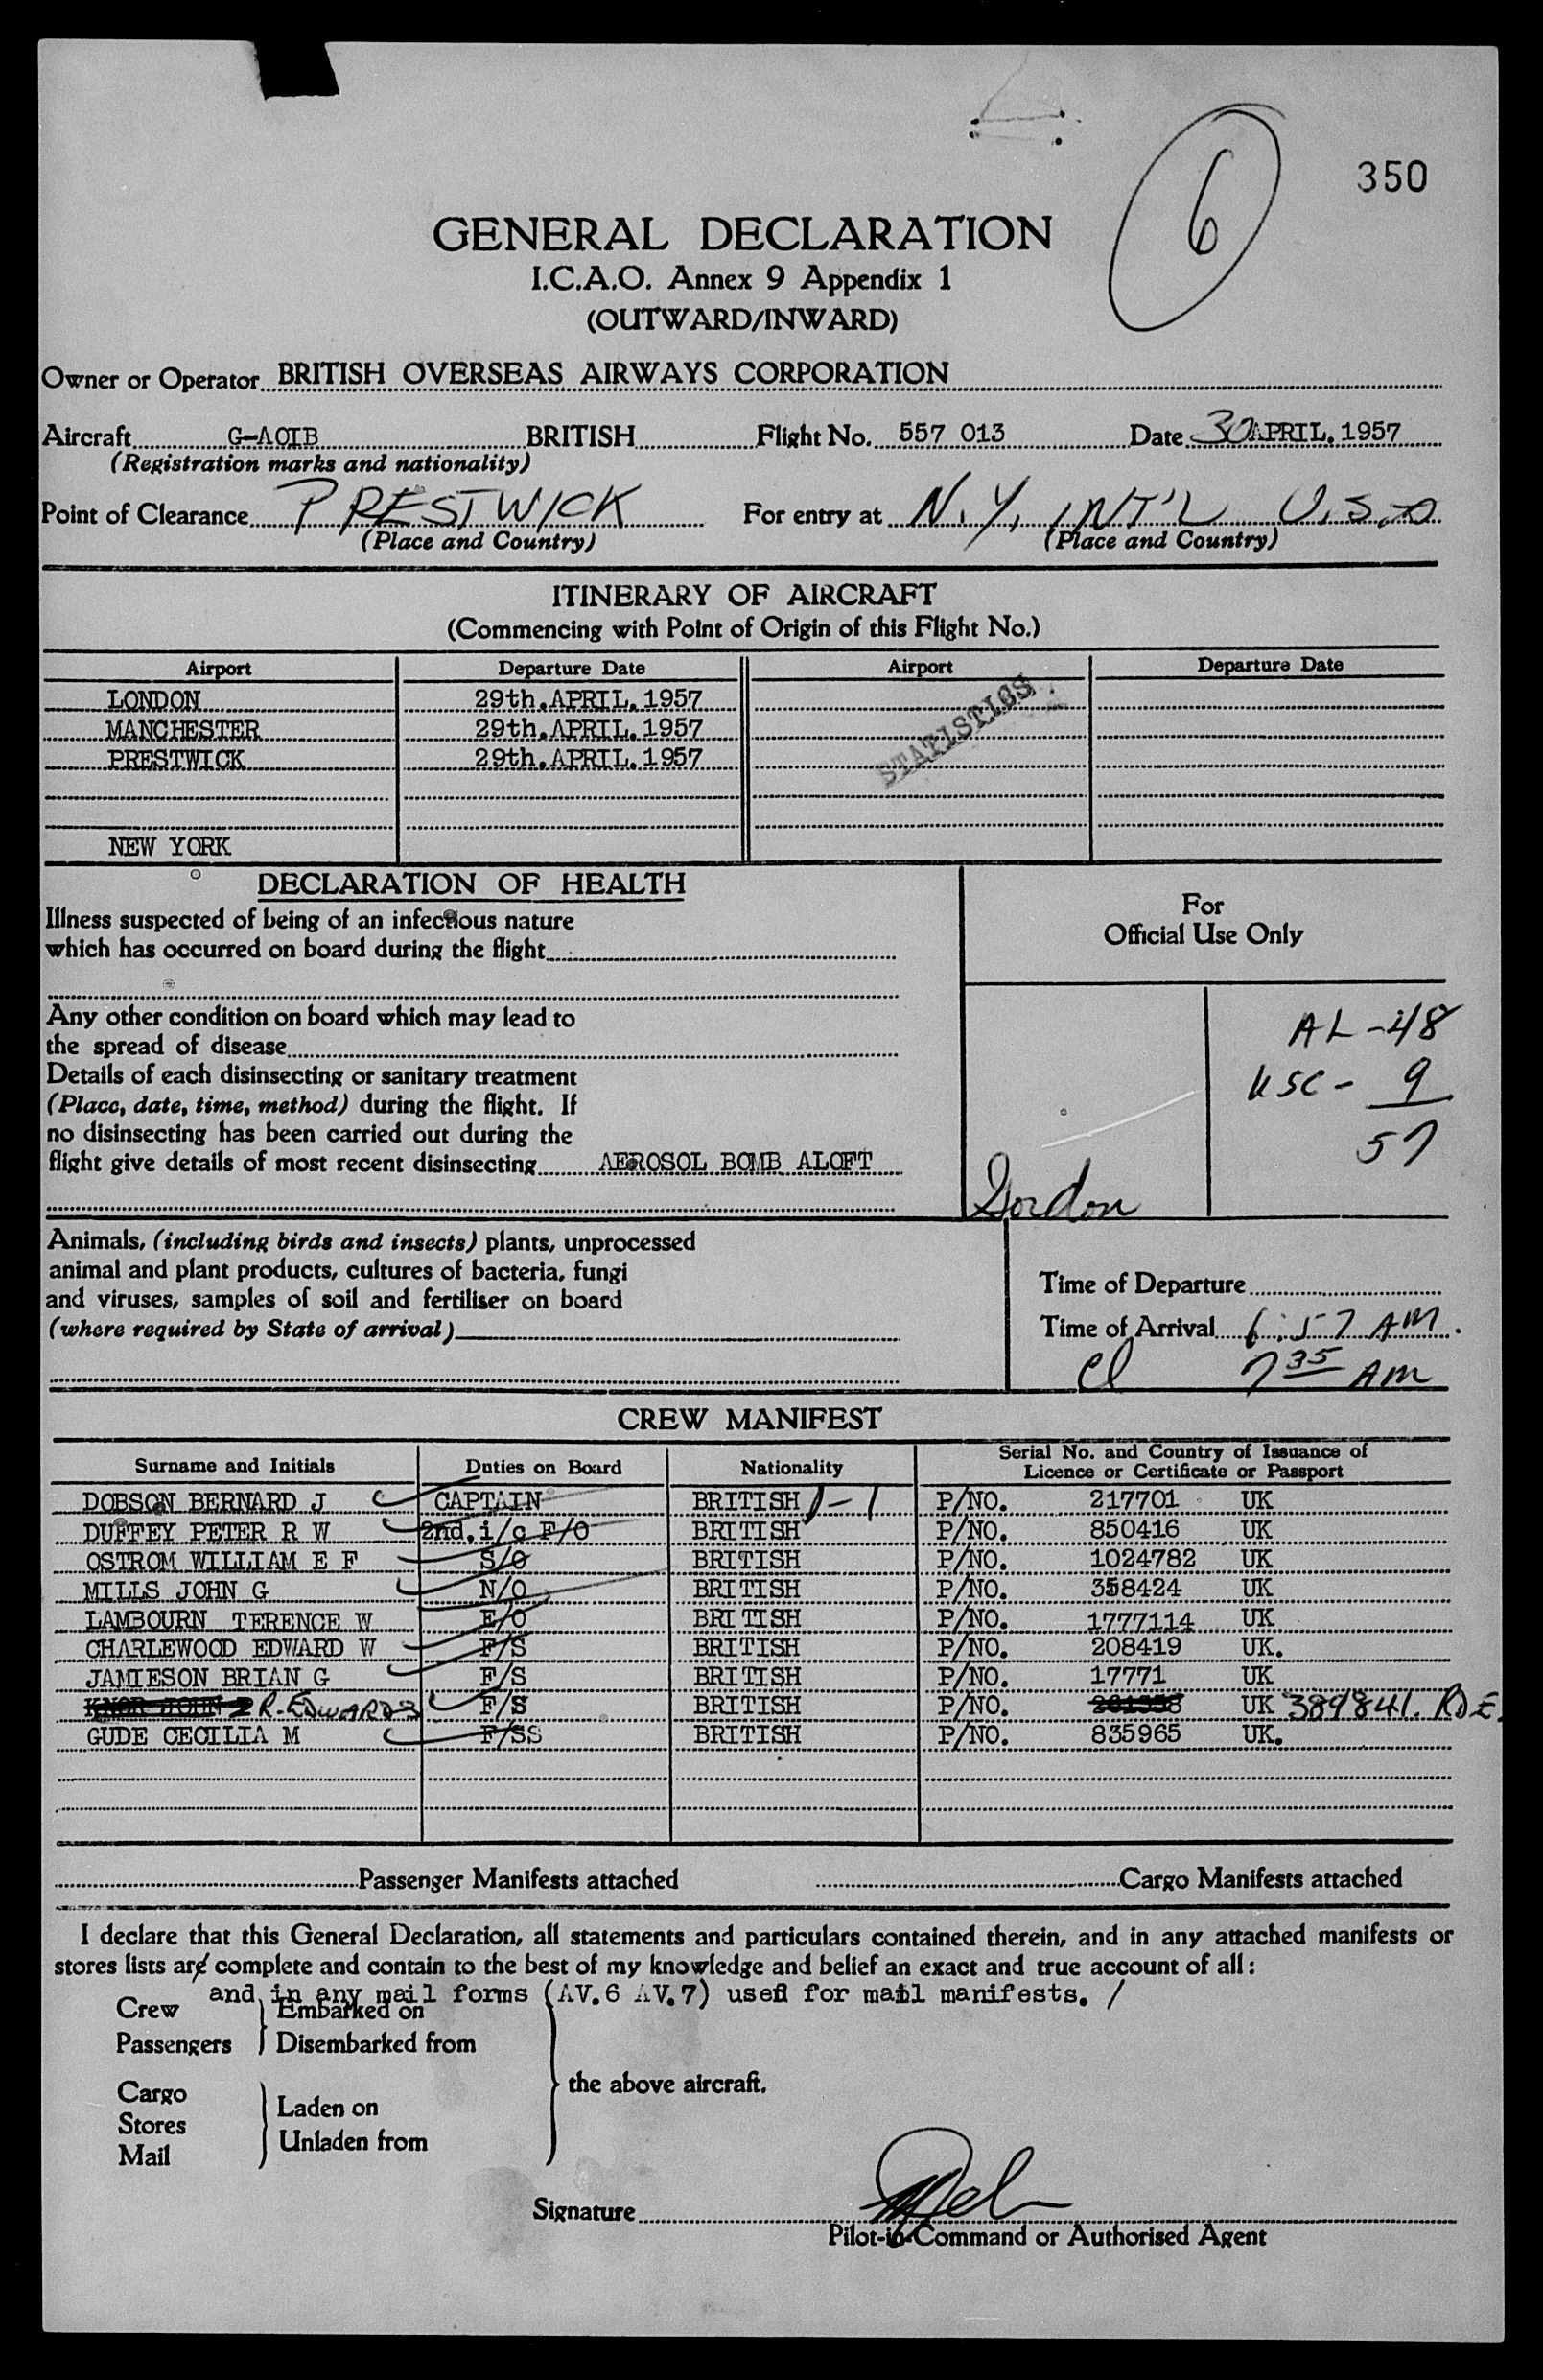 350
6
GENERAL DECLARATION
I.C.A.O. Annex 9 Appendix 1
(OUTWARD/INWARD)
Owner or Operator BRITISH OVERSEAS AIRWAYS CORPORATION
Aircraft G-AOIB BRITISH Flight No. 557 013 Date 30 APRIL. 1957
(Registration marks and nationality)
Point of Clearance PRESTWICK For entry at N.Y. INT'L U.S.A
(Place and Country) (Place and Country)
ITINERARY OF AIRCRAFT
(Commencing with Point of Origin of this Flight No.)
Airport Departure Date Airport Departure Date
LONDON 29th.APRIL.1957
MANCHESTER 29th.APRIL.1957
PRESTWICK 29th.APRIL.1957
STATISTICS
NEW YORK
DECLARATION OF HEALTH
Illness suspected of being of an infectious nature
which has occurred on board during the flight
For
Official Use Only
Any other condition on board which may lead to
the spread of disease
Details of each disinsecting or sanitary treatment
(Place, date, time, method) during the flight. If
no disinsecting has been carried out during the
flight give details of most recent disinsecting AEROSOL BOMB ALOFT
AL - 48
USC - 9
57
Gordon
Animals, (including birds and insects) plants, unprocessed
animal and plant products, cultures of bacteria, fungi
and viruses, samples of soil and fertiliser on board
(where required by State of arrival)
Time of Departure
Time of Arrival 6:57 AM.
Cl 7 35 AM
CREW MANIFEST
Surname and Initials Duties on Board Nationality Serial No. and Country of Issuance of Licence or Certificate or Passport
DOBSON BERNARD J CAPTAIN BRITISH D-1 P/NO. 217701 UK
DUFFEY PETER R W 2nd.i/c F/O BRITISH P/NO. 850416 UK
OSTROM WILLIAM E F S/O BRITISH P/NO. 1024782 UK
MILLS JOHN G N/O BRITISH P/NO. 358424 UK
LAMBOURN TERENCE W E/O BRITISH P/NO. 1777114 UK
CHARLEWOOD EDWARD W F/S BRITISH P/NO. 208419 UK.
JAMIESON BRIAN G F/S BRITISH P/NO. 17771 UK
R. EDWARDS F/S BRITISH P/NO. UK 389841. RDE.
GUDE CECILIA M F/SS BRITISH P/NO. 835965 UK.
Passenger Manifests attached Cargo Manifests attached
I declare that this General Declaration, all statements and particulars contained therein, and in any attached manifests or
stores lists are complete and contain to the best of my knowledge and belief an exact and true account of all:
and in any mail forms (AV.6 AV.7) used for mail manifests. /
Crew Embarked on
Passengers Disembarked from
the above aircraft.
Cargo
Laden on
Stores
Unladen from
Mail
Signature
Pilot-in-Command or Authorised Agent